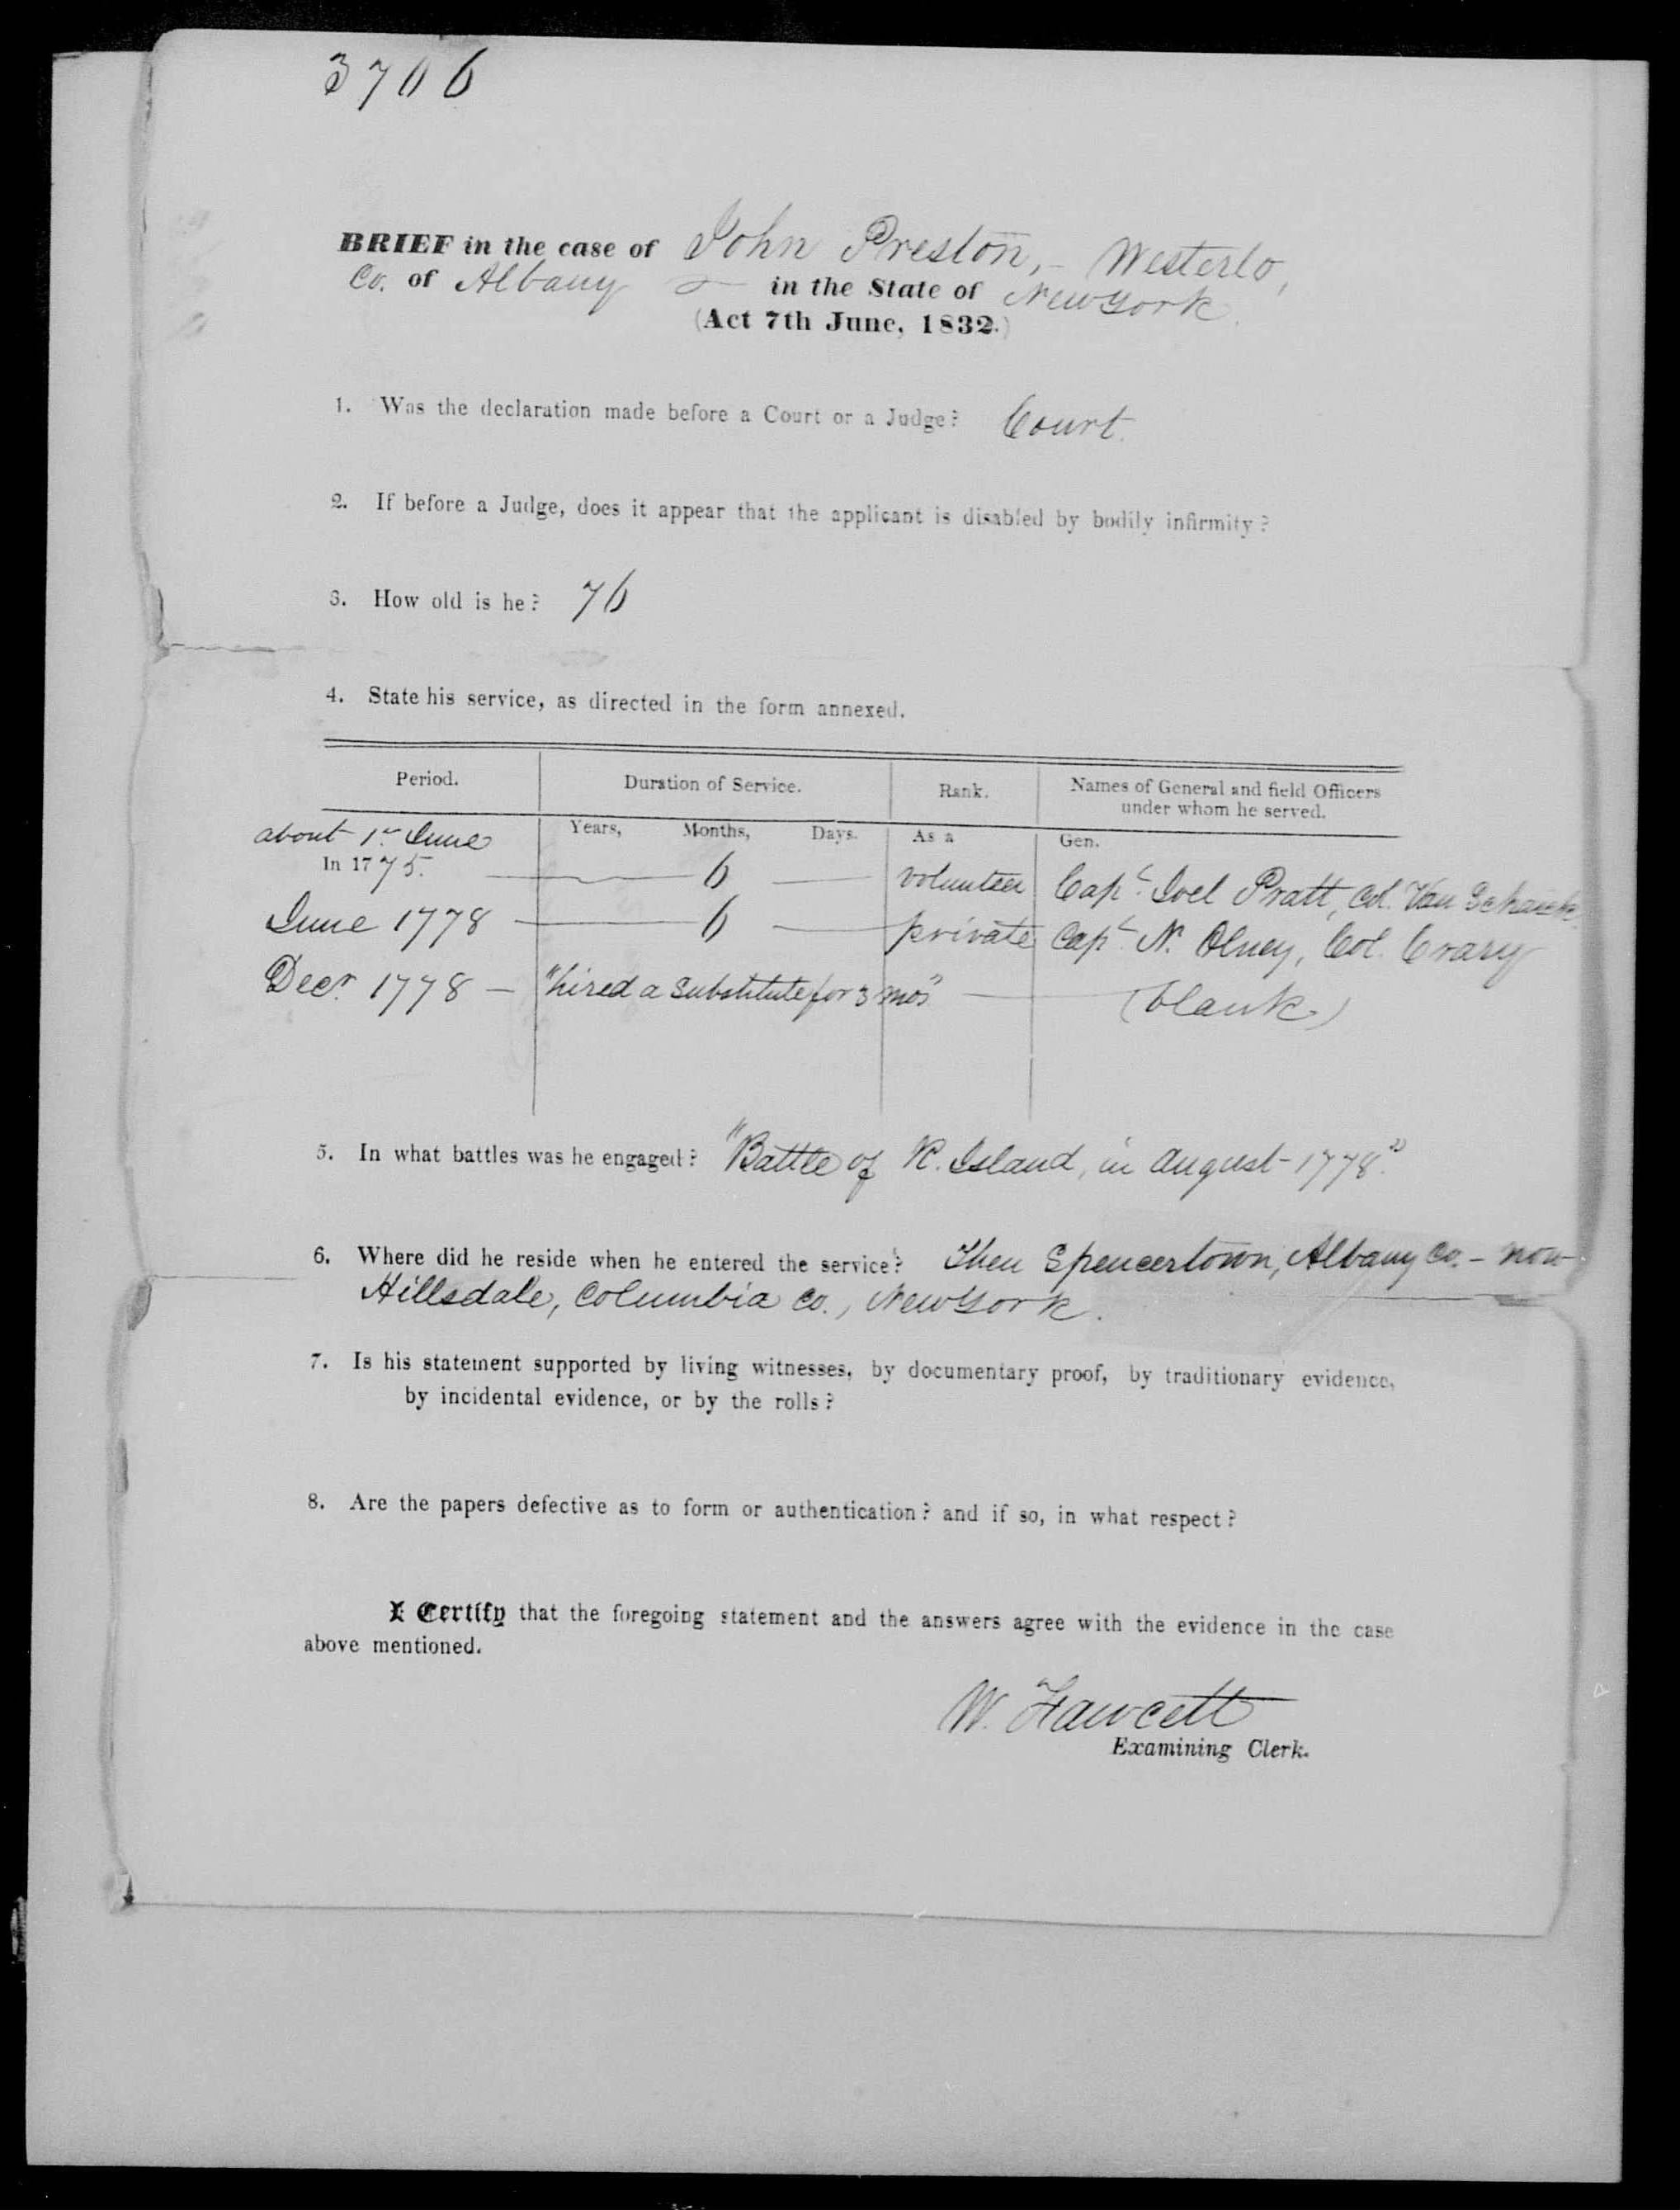 3706
BRIEF in the case of John Preston, - Westerlo,
Co. of Albany in the State of New York.
(Act 7th June, 1832.)
1. Was the declaration made before a Court or a Judge? Court.
2. If before a Judge, does it appear that the applicant is disabled by bodily infirmity?
3. How old is he? 76
4. State his service, as directed in the form annexed.
Period. Duration of Service. Rank. Names of General and field Officers
under whom he served.
Years, Months, Days. As a Gen.
about 1st June
In 1775. 6 volunteer Capt. Joel Pratt, Col. Van Schaick
June 1778 6 private Capt. N. Olney, Col. Crary
Decr. 1778 - "hired a Substitute for 3 mos" (blank)
5. In what battles was he engaged? "Battle of R. Island, in August - 1778."
6. Where did he reside when he entered the service? Then Spencertown, Albany Co. - now
Hillsdale, Columbia Co., New York.
7. Is his statement supported by living witnesses, by documentary proof, by traditionary evidence,
by incidental evidence, or by the rolls?
8. Are the papers defective as to form or authentication? and if so, in what respect?
I Certify that the foregoing statement and the answers agree with the evidence in the case
above mentioned.
W. Fawcett
Examining Clerk.